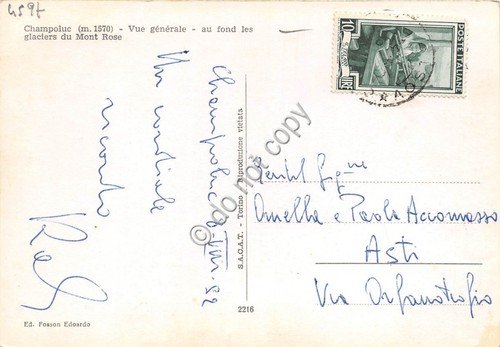 4597
Champoluc (m. 1570) - Vue générale - au fond les
glaciers du Mont Rose
Champoluc 8-VIII-52
Un cordiale
ricordo
S.A.C.A.T. - Torino Riproduzione vietata
2216
Ed. Fosson Edoardo
10
LIRE
POSTE ITALIANE
Gentil Sig.ne
Amella e Paola Accomasso
Asti
Via Orfanotrofio
do not copy